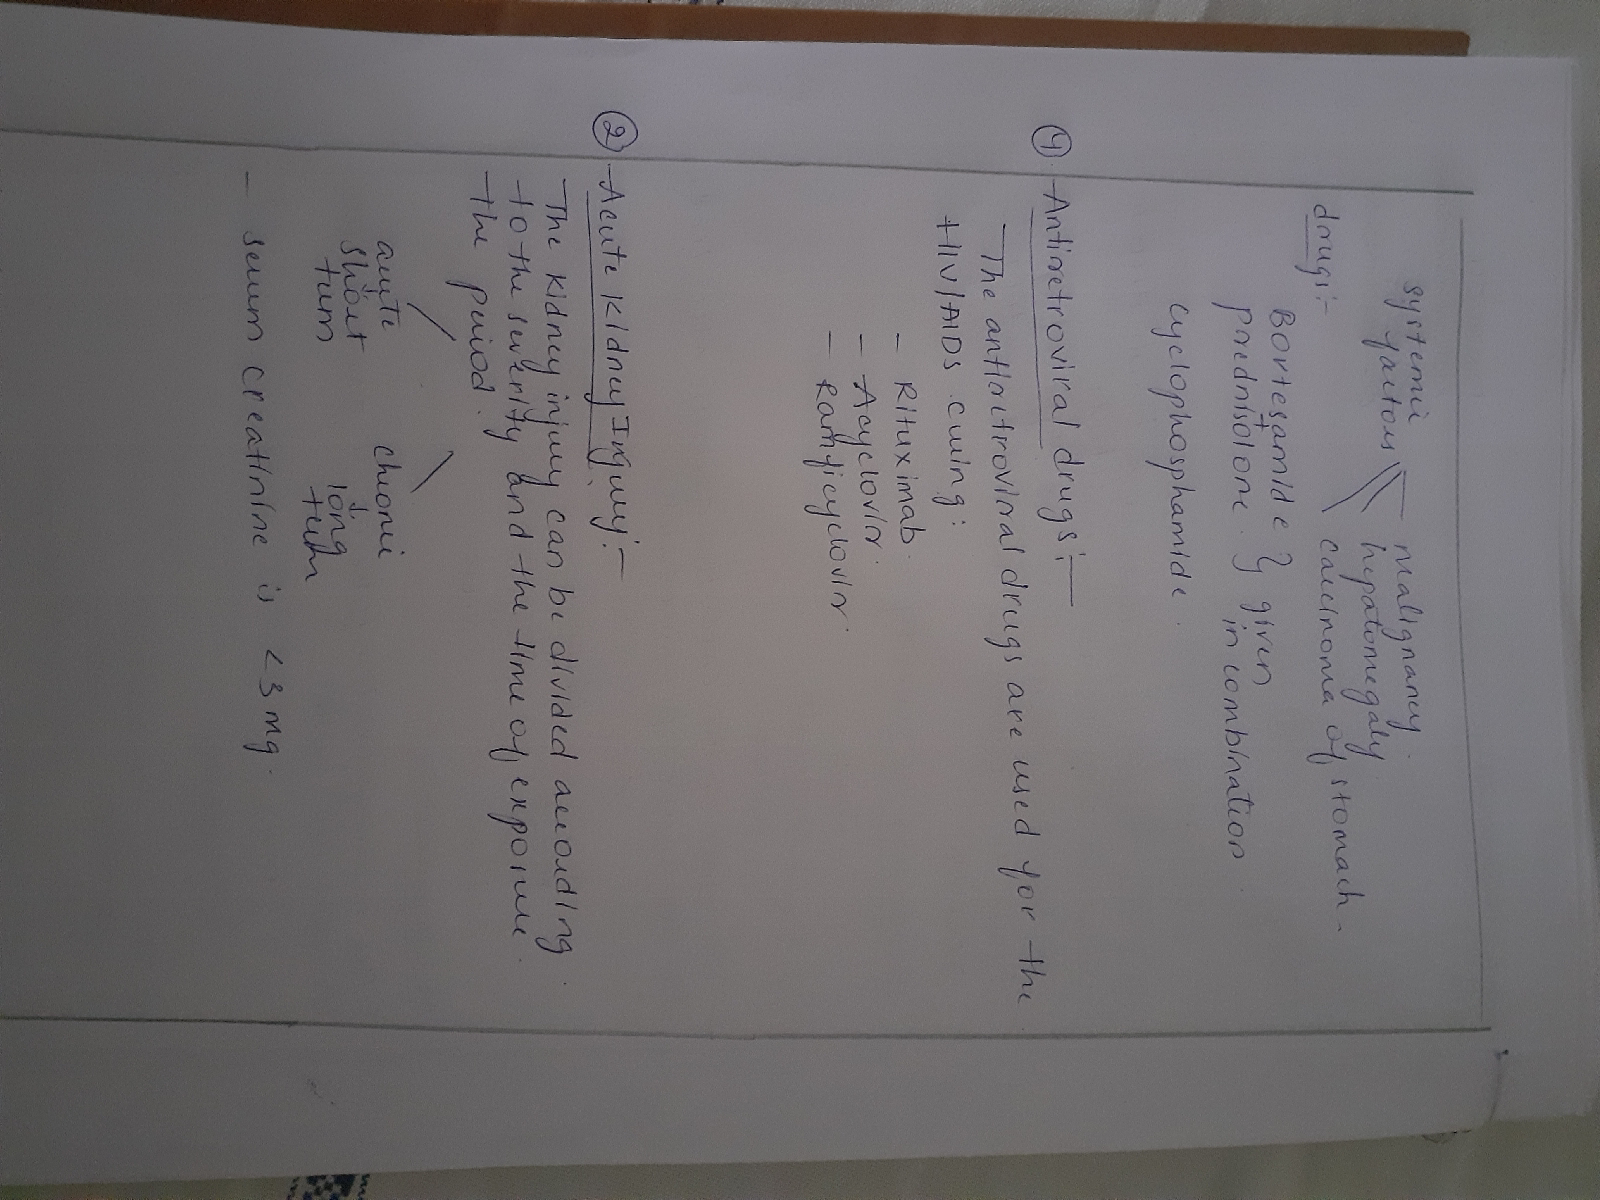 systemic factors
malignancy.
hepatomegaly
carcinoma of stomach.
drugs:-
Bortesamide } given
+
prednisolone. in combination
cyclophosphamide.
④ Antiretroviral drugs:-
- The antiretroviral drugs are used for the
HIV/AIDS curing:
- Rituximab.
- Acyclovir.
- Ramficyclovir.
② Acute Kidney Injury:-
The kidney injury can be divided according
to the severity and the time of exposure.
the period.
acute chronic
↓ ↓
short long
term term
- serum creatinine is <3 mg.